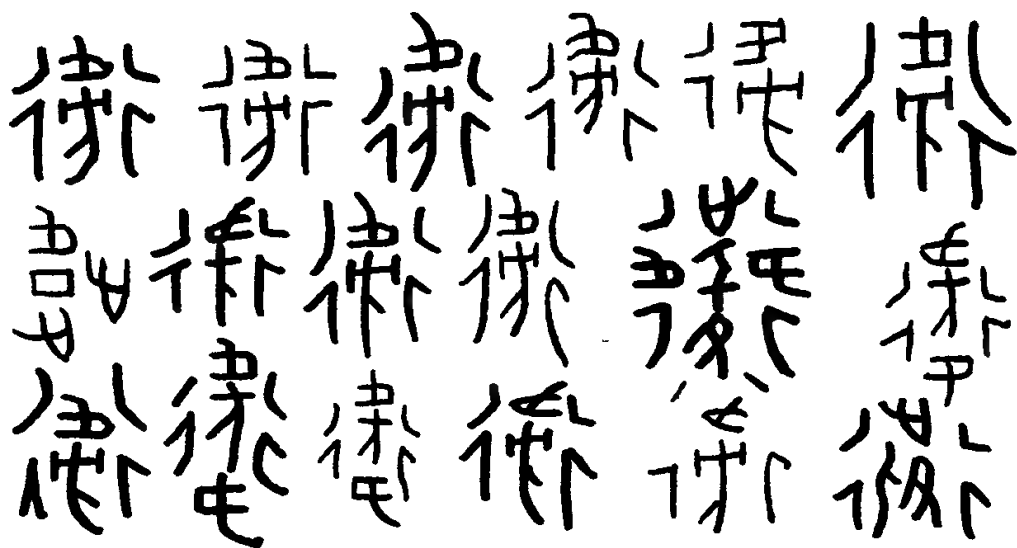 衛衛衛衛衛衛
衛衛衛衛衛衛
衛衛衛衛衛衛